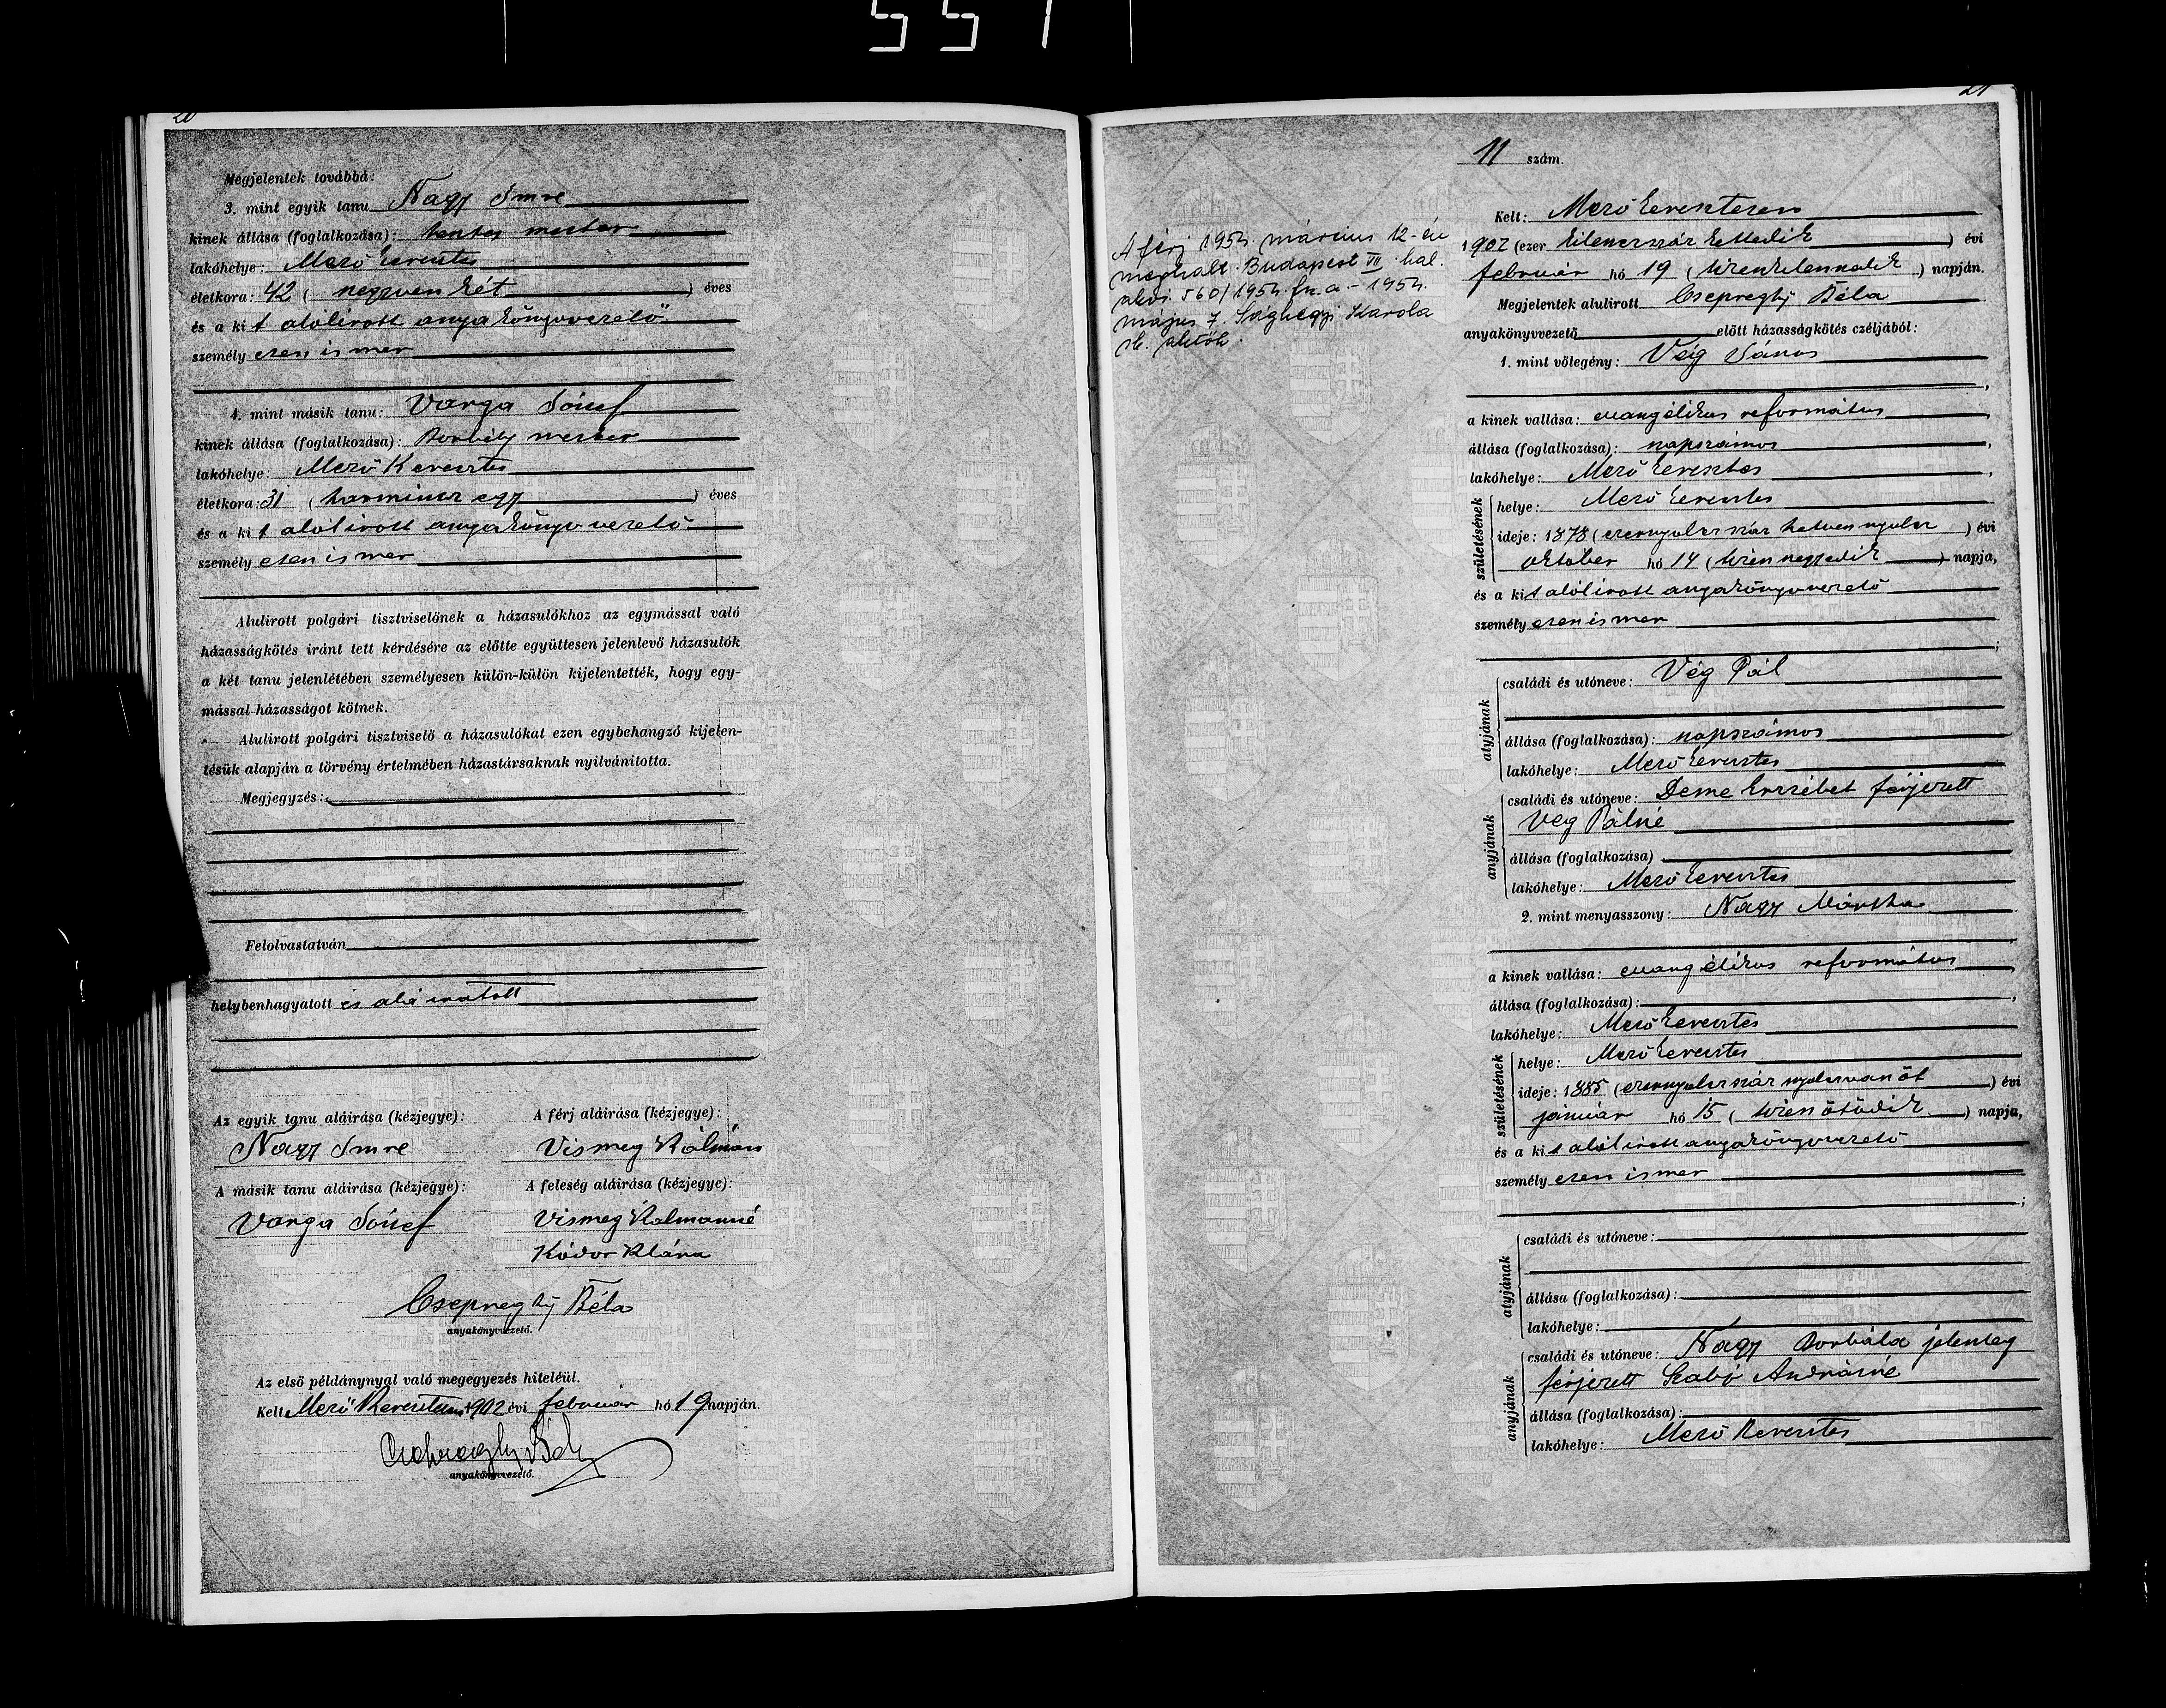 551
20
Megjelentek továbbá:
3. mint egyik tanu Nagy Imre
kinek állása (foglalkozása): hentes mester
lakóhelye: Mező keresztes
életkora: 42 ( negyven két ) éves
és a ki t alólirott anyakönyvvezető
személyesen ismer
4. mint másik tanu: Varga József
kinek állása (foglalkozása): Borbély mester
lakóhelye: Mező Keresztes
életkora: 31 ( harmincz egy ) éves
és a ki t alólirott anyakönyvvezető
személyesen ismer
Alulirott polgári tisztviselőnek a házasulókhoz az egymással való
házasságkötés iránt tett kérdésére az előtte együttesen jelenlevő házasulók
a két tanu jelenlétében személyesen külön-külön kijelentették, hogy egy-
mással házasságot kötnek.
Alulirott polgári tisztviselő a házasulókat ezen egybehangzó kijelen-
tésük alapján a törvény értelmében házastársaknak nyilvánitotta.
Megjegyzés:
Felolvastatván
helybenhagyatott és aláiratott
Az egyik tanu aláirása (kézjegye): A férj aláirása (kézjegye):
Nagy Imre Vismeg Kálmán
A másik tanu aláirása (kézjegye): A feleség aláirása (kézjegye):
Varga József Vismeg Kálmánné
Kódor Klára
Csepreghy Béla
anyakönyvvezető.
Az első példánynyal való megegyezés hiteléül.
Kelt Mező Keresztesen 1902 évi február hó 19 napján.
Csepreghy Béla
anyakönyvvezető.
21
11 szám.
A férj 1954. március 12-én
meghalt. Budapest VII. hal.
akvi. 560/1954. fn. a. - 1954.
május 7. Sághegyi Karola
Kelt: Mező keresztesen
1902 (ezer kilenczszáz kettedik ) évi
február hó 19 ( tizenkilenczedik ) napján.
Megjelentek alulirott Csepreghy Béla
anyakönyvvezető előtt házasságkötés czéljából:
1. mint vőlegény: Vég János
a kinek vallása: evangélikus református
állása (foglalkozása): napszámos
lakóhelye: Mező keresztes
születésének
helye: Mező keresztes
ideje: 1878 ( ezernyolczszáz hetvennyolcz ) évi
október hó 14 ( tizennegyedik ) napja,
és a ki t alólirott anyakönyvvezető
személyesen ismer ;
atyjának
családi és utóneve: Vég Pál
állása (foglalkozása): napszámos
lakóhelye: Mező keresztes
anyjának
családi és utóneve: Deme Erzsébet férjezett
Vég Pálné
állása (foglalkozása)
lakóhelye: Mező keresztes
2. mint menyasszony: Nagy Mártha
a kinek vallása: evangélikus református
állása (foglalkozása):
lakóhelye: Mező keresztes
születésének
helye: Mező keresztes
ideje: 1885 ( ezernyolczszáz nyolczvanöt ) évi
január hó 15 ( tizenötödik ) napja,
és a ki t alólirott anyakönyvvezető
személyesen ismer ;
atyjának
családi és utóneve:
állása (foglalkozása):
lakóhelye:
anyjának
családi és utóneve: Nagy Borbála jelenleg
férjezett Szabó Andrásné
állása (foglalkozása):
lakóhelye: Mező Keresztes